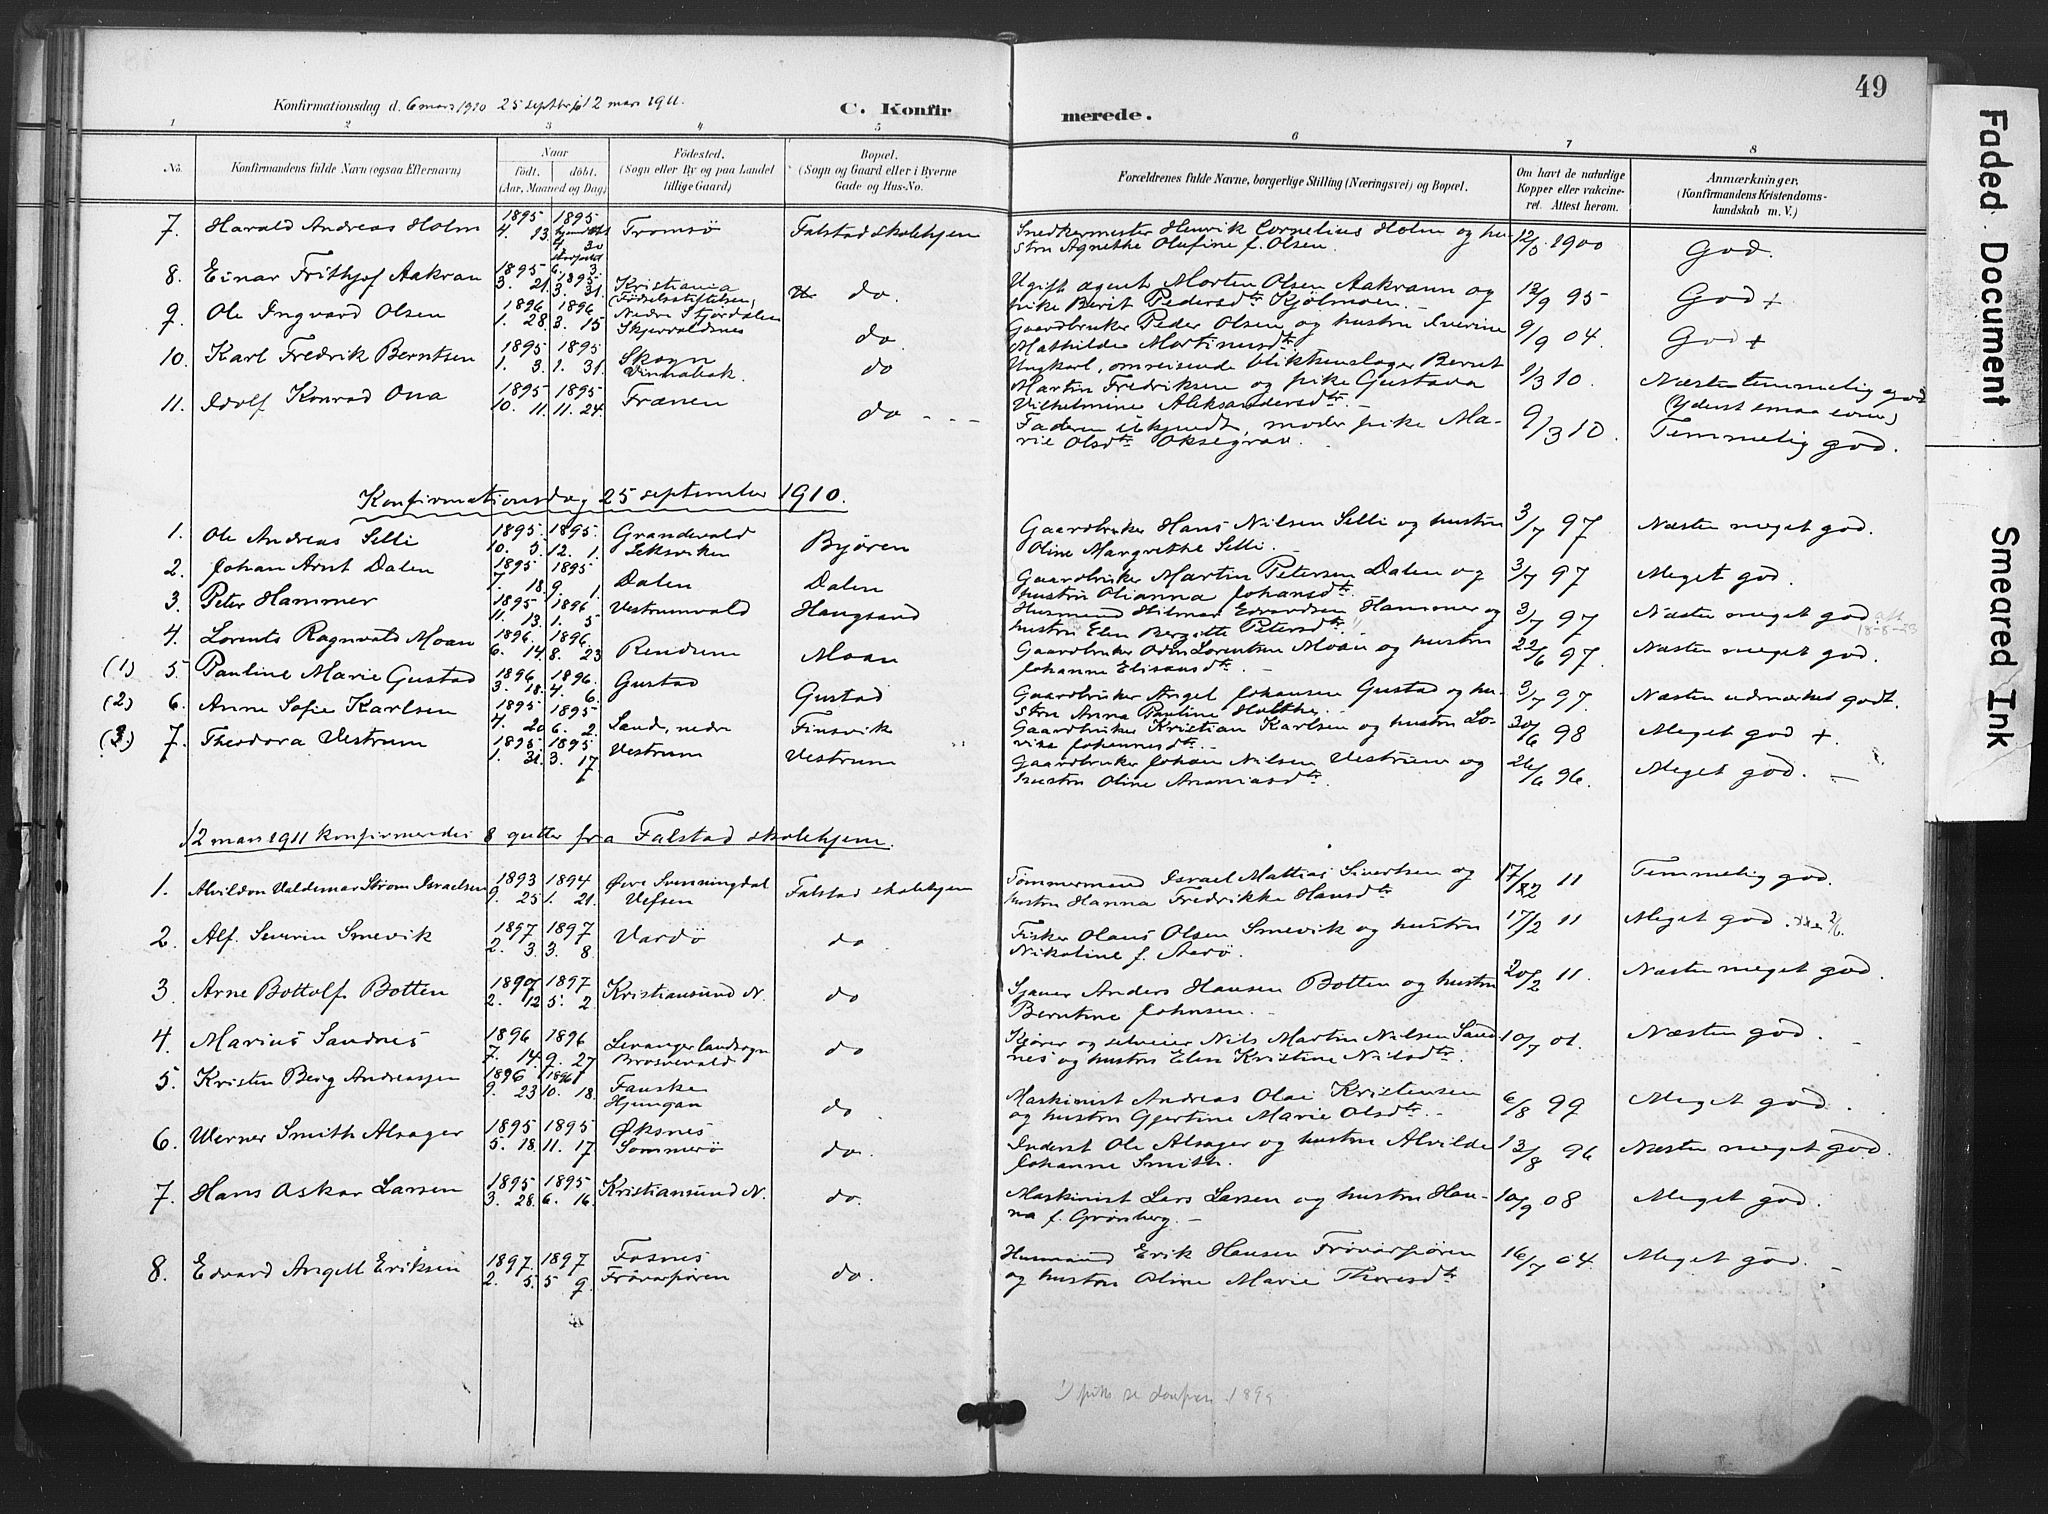 49
Konfirmationsdag d. 6 mars 1910 25 septbr 12 mars 1911.
C. Konfirmerede.
1 2 3 4 5 6 7 8
No.
Konfirmandens fulde Navn (ogsaa Efternavn)
Naar
født. døbt.
(Aar, Maaned og Dag)
Födested.
(Sogn eller By og paa Landet
tillige Gaard)
Bopæl.
(Sogn og Gaard eller i Byerne
Gade og Hus-No.
Forældrenes fulde Navne, borgerlige Stilling (Næringsvei) og Bopæl.
Om havt de naturlige
Kopper eller vakcine-
ret. Attest herom.
Anmærkninger.
(Konfirmandens Kristendoms-
kundskab m. V.)
7. Harald Andreas Holm 1895 4. 13. 1895 Tromsö Falstad skolehjem Snedkermester Henrik Cornelius Holm og hu-
stru Agnethe Olufine f. Olsen. 12/5 1900 God.
8. Einar Frithjof Aakran 1895 3. 21. 1895 3. 31. Kristiania (Fødselsstiftelsen) do. Ugift agent Morten Olsen Aakrann og
pike Berit Pedersdtr Kjölmoen. 12/9 95 God +
9. Ole Ingvard Olsen 1896 1. 28. 1896 3. 15 Nedre Stjørdalen Skjervaldsnes do Gaardbruker Peder Olsen og hustru Iverine
Mathilde Martinusdtr 9/9 04. God +
10. Karl Fredrik Berntsen 1895 1. 3. 1895 1. 31. Skogn do Ungkarl, omreisende blikkenslager Bernt
Martin Fredriksen og pike Gustava
Vilhelmine Aleksandersdtr. 1/3 10. Næsten temmelig god
(yderst smaa evner)
11. Adolf Konrad Ona 1895 10. 11. 1895 11. 24. Frænen do Faderen ukjendt, moder pike Ma-
rie Olsdtr Oksegrav. 9/3 10. Temmelig god.
Konfirmationsdag 25 september 1910.
1. Ole Andreas Selli 1895. 10. 3. 1895. 12. 1. Grandevald Leksviken Byören Gaardbruker Hans Nilsen Selli og hustru
Oline Margrethe Selli. 3/7 97 Næsten meget god.
2. Johan Arnt Dalen 1895 7. 18. 1895 9. 1. Dalen Dalen Gaardbruker Martin Petersen Dalen og
hustru Olianna Johansdtr. 3/7 97 Meget god.
3. Peter Hammer 1895 11. 13. 1896 1. 5 Vestrumvald Haugsand Husmand Hilmar Edvardsen Hammer og
hustru Elen Bergitte Petersdtr 3/7 97 Næsten meget god. 18-8-23
4. Lorents Ragnvald Moan 1896. 6. 14. 1896. 8. 23 Rendum Moan Gaardbruker Odin Lorentsen Moan og hustru
Johanne Elisausdtr. 22/6 97. Næsten meget god.
(1) 5. Pauline Marie Gustad 1896 3. 18. 1896. 4. 6. Gustad Gustad Gaardbruker Angel Johansen Gustad og hu-
stru Anna Pauline Holthe. 3/7 97. Næsten udmærket godt.
(2) 6. Anne Sofie Karlsen 1895 4. 20 1895 6. 2. Sand, nedre Finsvik Gaardbruker Kristian Karlsen og hustru Lo-
vise Johannesdtr. 30/6 98 Meget god +.
(3) 7. Theodora Vestrum 1895. 1. 31. 1895 3. 17 Vestrum Vestrum Gaardbruker Johan Nilsen Vestrum og
hustru Oline Ananiasdtr. 26/6 96. Meget god.
12 mars 1911 konfirmeredes 8 gutter fra Falstad skolehjem.
1. Alvildon Valdemar Strøm Israelsen 1893 9. 25 1894 1. 21. Øvre Svenningdal Vefsen Falstad skolehjem Tömmermand Israel Mattias Sivertsen og
hustru Hanna Fredrikke Hansdtr 17/2 11 Temmelig god.
2. Alf Severin Smevik 1897 2. 3 1897 3. 8 Vardö do Fisker Olaus Olsen Smevik og hustru
Nikoline f. Aarö. 17/2 11 Meget god.
3. Arne Bottolf Botten 1897 2. 12 1897 5. 2 Kristiansund N. do Sjauer Anders Hansen Botten og hustru
Berntine Johnsen. 20/2 11. Næsten meget god.
4. Marius Sandnes 1896 7. 14. 1896 9. 27 Levanger landsogn do Kjører og selveier Nils Martin Nilsen Sand-
nes og hustru Elen Kristine Nilsdtr. 10/7 01. Næsten god.
5. Kristen Berg Andreassen 1896 9. 23 1896 10. 18. Fauske Hjungan do Maskinist Andreas Olai Kristensen
og hustru Gjertine Marie Olsdtr. 6/8 99 Meget god.
6. Werner Smith Alsager 1895 5. 18. 1895 11. 17 Øksnes Sommerö do. Inderst Ole Alsager og hustru Alvilde
Johanne Smith. 13/8 96 Næsten meget god.
7. Hans Oskar Larsen 1895 3. 28. 1895 6. 16. Kristiansund N. do. Maskinist Lars Larsen og hustru Han-
na f. Grönberg. 10/9 08 Meget god.
8. Edvard Angell Eriksen 1897. 2. 5. 1897 5 9 Fosnes Frövarpören do. Husmand Erik Hansen Frövarpören
og hustru Oline Marie Thoresdtr 16/7 04. Meget god.
1899
Faded Document
Smeared Ink